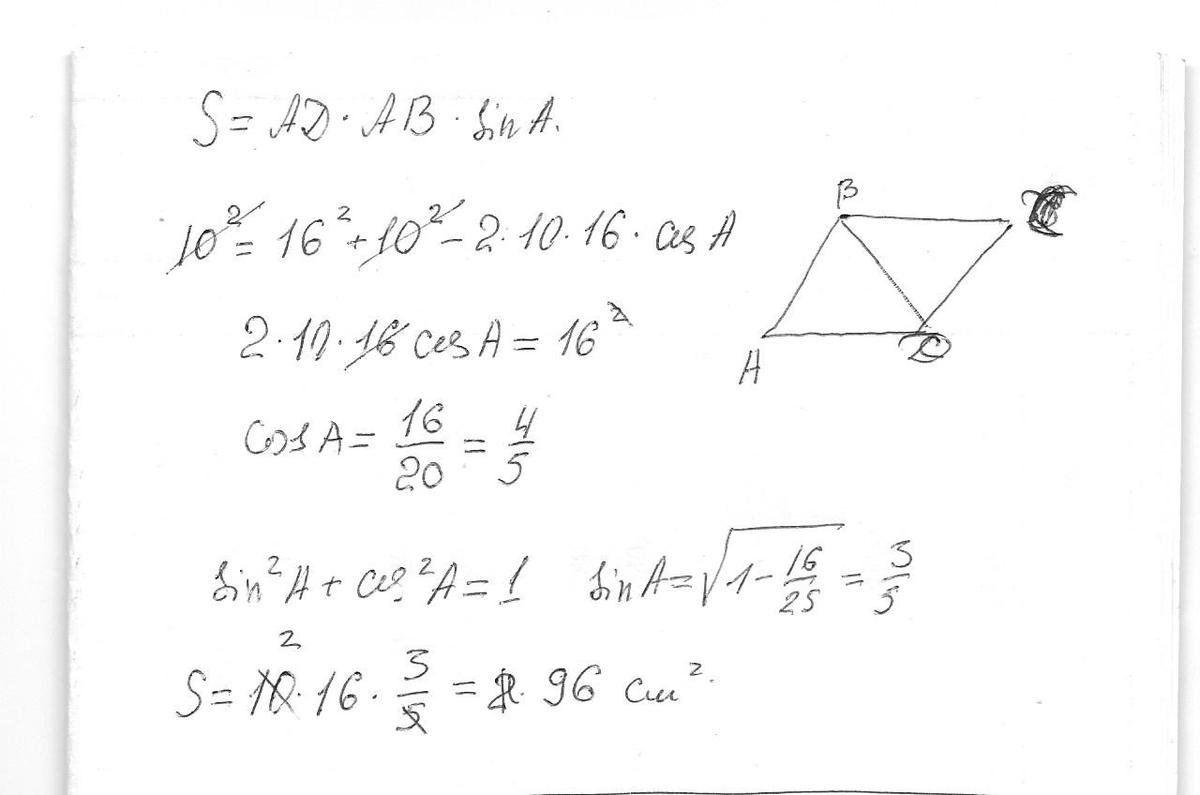 S = AD · AB · sin A.
10² = 16² + 10² - 2 · 10 · 16 · cos A
2 · 10 · 16 cos A = 16²
cos A = 16/20 = 4/5
sin² A + cos² A = 1 sin A = √(1 - 16/25) = 3/5
2
S = 10 · 16 · 3/5 = 96 см².
B
A
D